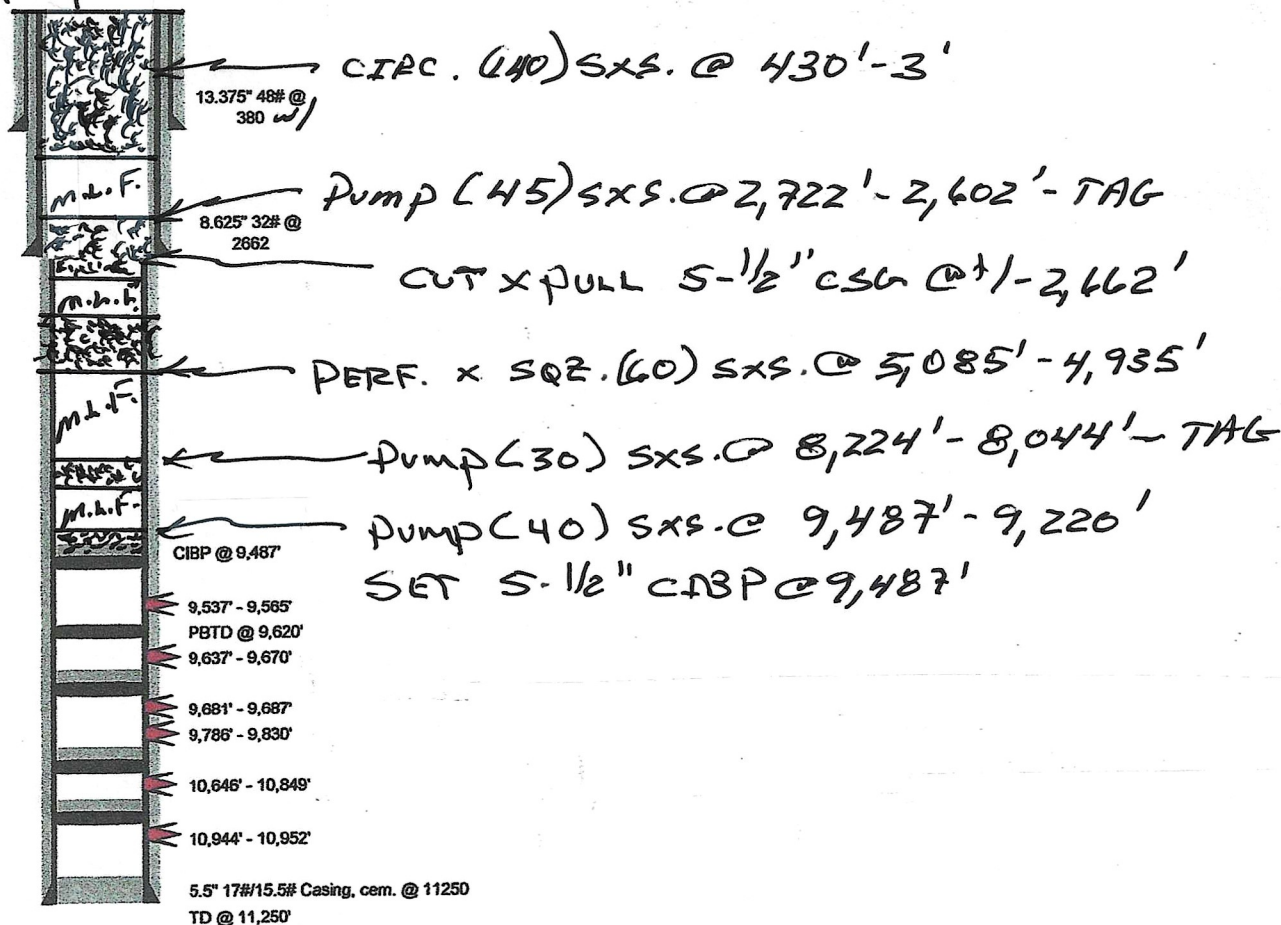 CIRC. (140) SXS. @ 430'-3'
13.375" 48# @
380 w/
M.L.F.
Pump (45) SXS. @ 2,722'-2,602'- TAG
8.625" 32# @
2662
CUT X PULL 5-1/2" CSG @ +/- 2,662'
M.L.F.
PERF. X SQZ. (60) SXS. @ 5,085'-4,935'
M.L.F.
Pump (30) SXS. @ 8,224'-8,044'- TAG
M.L.F.
Pump (40) SXS. @ 9,487'-9,220'
CIBP @ 9,487'
SET 5-1/2" CIBP @ 9,487'
9,537' - 9,565'
PBTD @ 9,620'
9,637' - 9,670'
9,681' - 9,687'
9,786' - 9,830'
10,646' - 10,849'
10,944' - 10,952'
5.5" 17#/15.5# Casing, cem. @ 11250
TD @ 11,250'